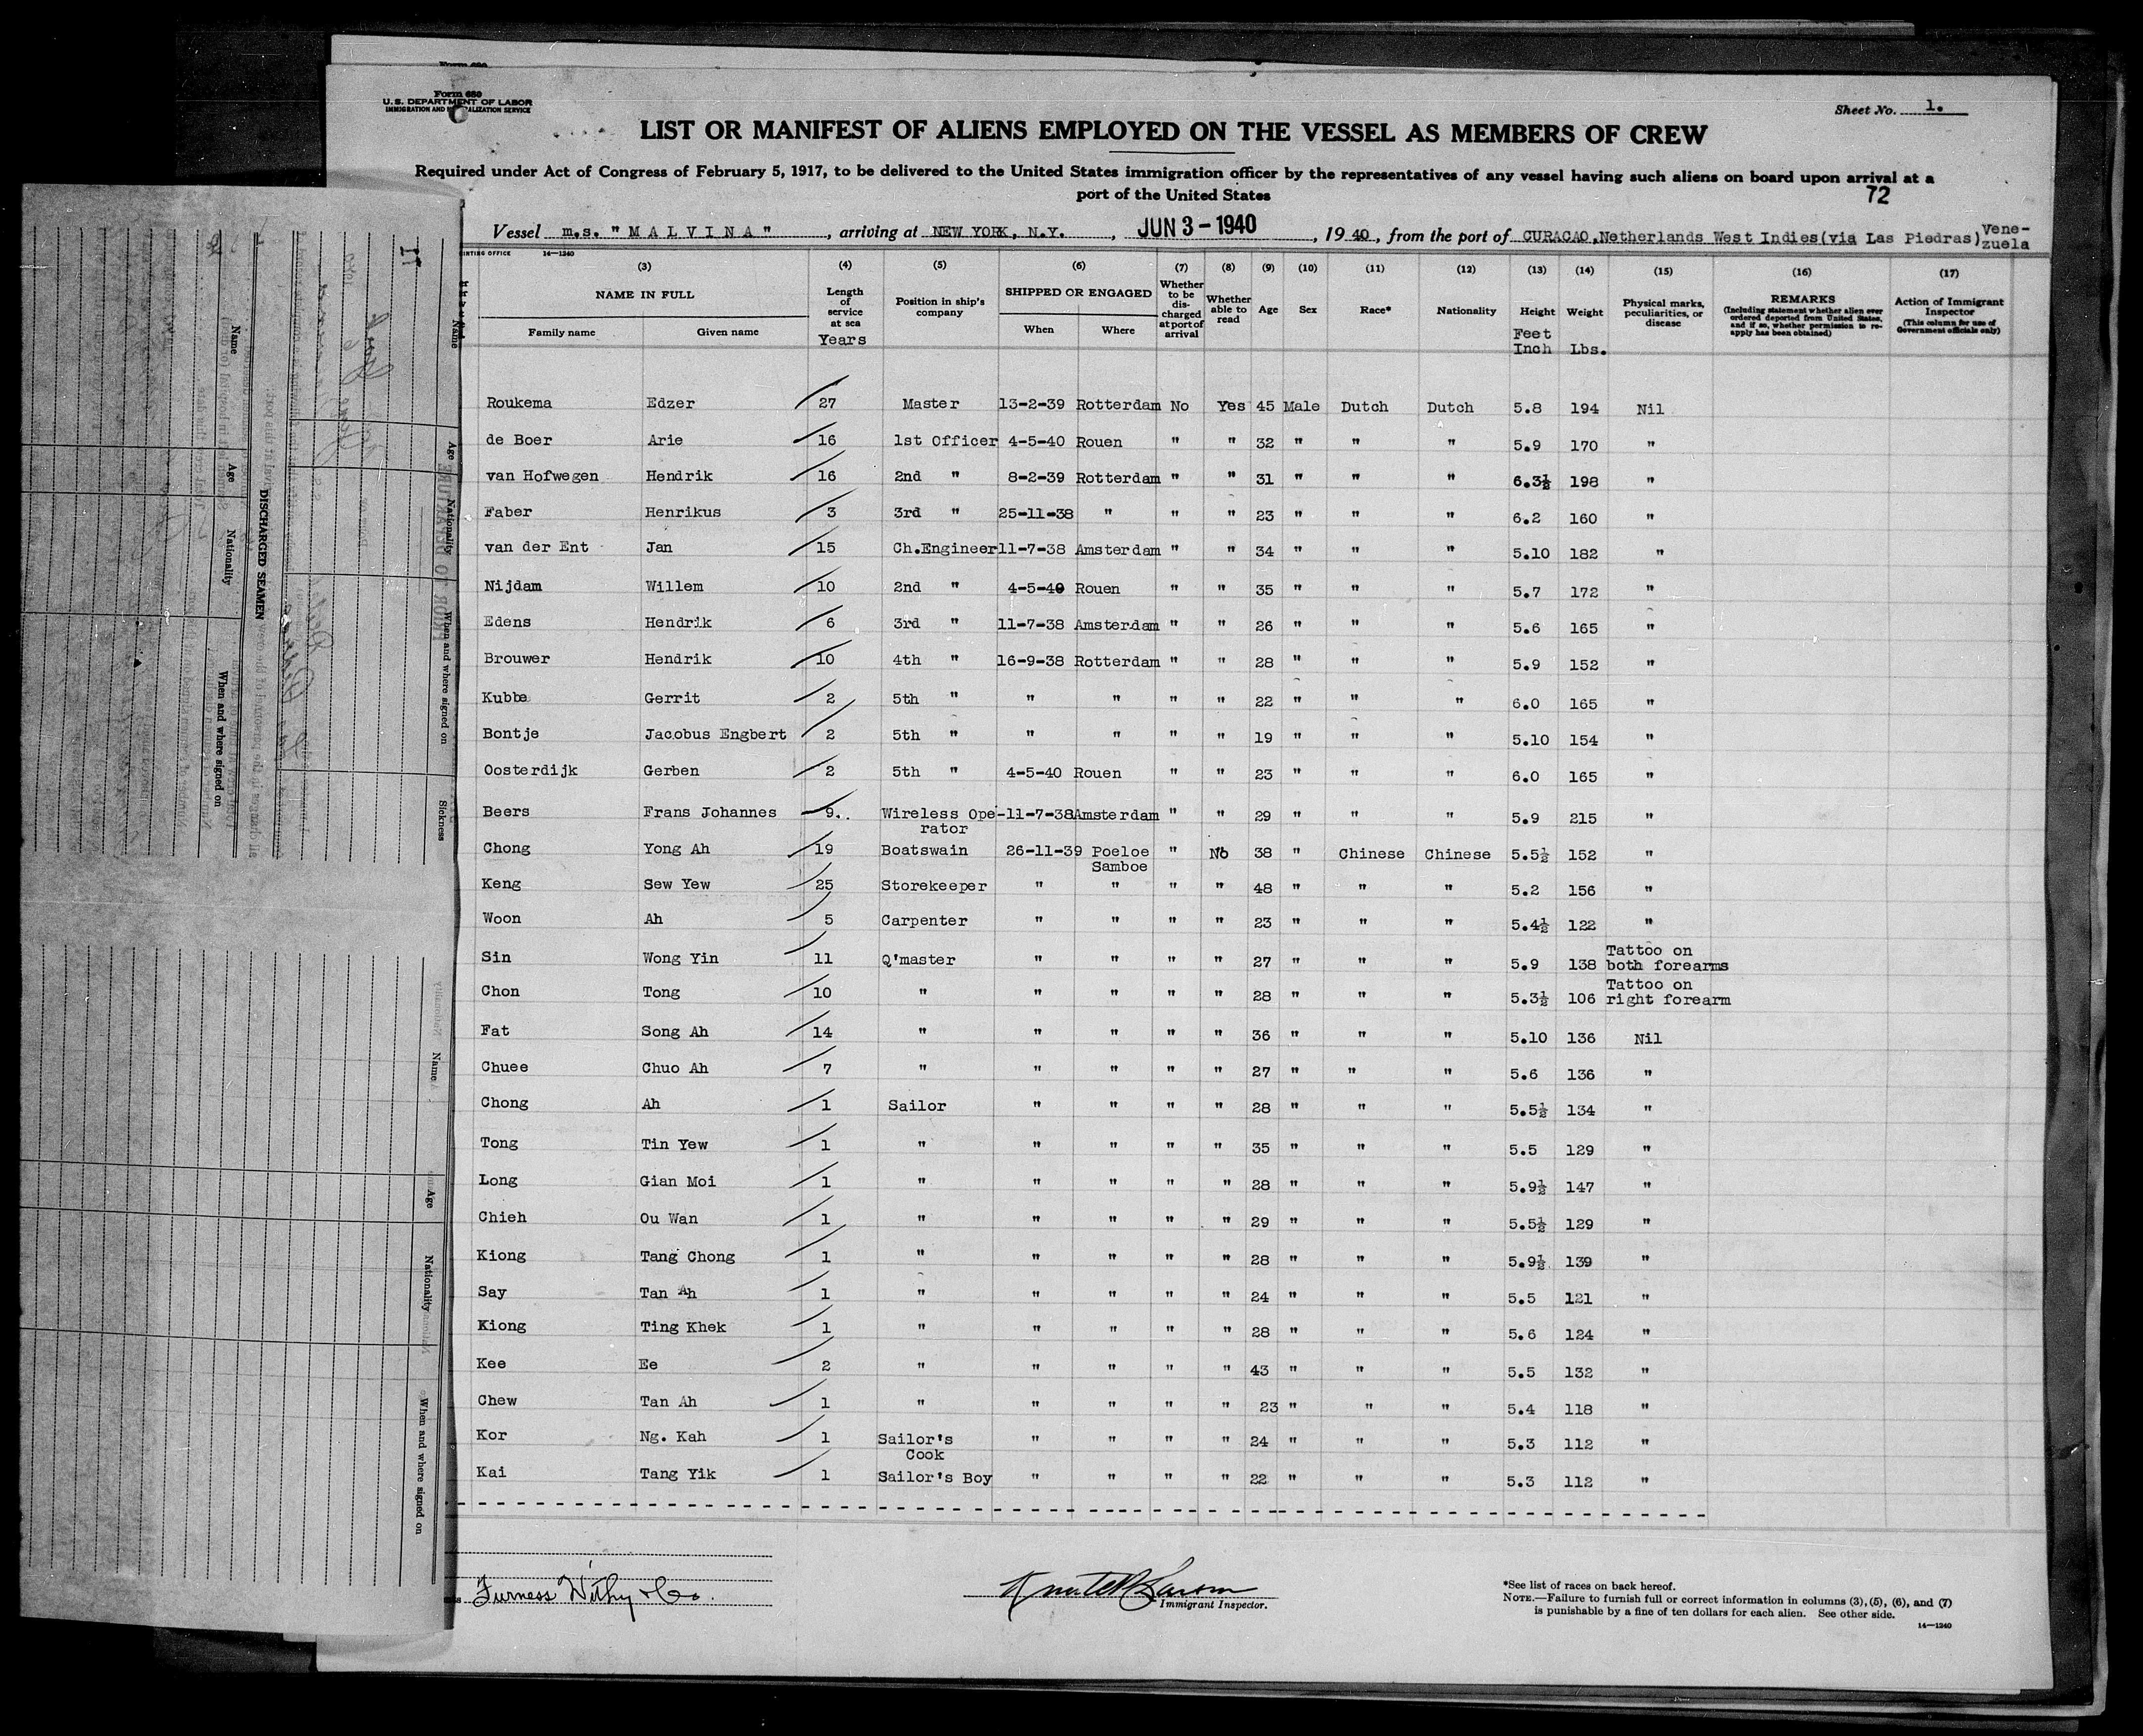 Form 689
U. S. DEPARTMENT OF LABOR
IMMIGRATION AND NATURALIZATION SERVICE
Sheet No. 1.
LIST OR MANIFEST OF ALIENS EMPLOYED ON THE VESSEL AS MEMBERS OF CREW
Required under Act of Congress of February 5, 1917, to be delivered to the United States immigration officer by the representatives of any vessel having such aliens on board upon arrival at a
port of the United States
72
Vessel m.s. "MALVINA", arriving at NEW YORK, N.Y., JUN 3 - 1940, 19 40, from the port of CURACAO, Netherlands West Indies (via Las Piedras) Vene-
zuela
14-1240
(3) (4) (5) (6) (7) (8) (9) (10) (11) (12) (13) (14) (15) (16) (17)
NAME IN FULL Length of service at sea Position in ship's company SHIPPED OR ENGAGED Whether to be discharged at port of arrival Whether able to read Age Sex Race* Nationality Height Weight Physical marks, peculiarities, or disease REMARKS (Including statement whether alien ever ordered deported from United States, and if so, whether permission to reapply has been obtained) Action of Immigrant Inspector (This column for use of Government officials only)
Family name Given name Years When Where Feet Inch Lbs.
Roukema Edzer 27 Master 13-2-39 Rotterdam No Yes 45 Male Dutch Dutch 5.8 194 Nil
de Boer Arie 16 1st Officer 4-5-40 Rouen " " 32 " " " 5.9 170 "
van Hofwegen Hendrik 16 2nd " 8-2-39 Rotterdam " " 31 " " " 6.3½ 198 "
Faber Henrikus 3 3rd " 25-11-38 " " " 23 " " " 6.2 160 "
van der Ent Jan 15 Ch.Engineer 11-7-38 Amsterdam " " 34 " " " 5.10 182 "
Nijdam Willem 10 2nd " 4-5-40 Rouen " " 35 " " " 5.7 172 "
Edens Hendrik 6 3rd " 11-7-38 Amsterdam " " 26 " " " 5.6 165 "
Brouwer Hendrik 10 4th " 16-9-38 Rotterdam " " 28 " " " 5.9 152 "
Kubbe Gerrit 2 5th " " " " " 22 " " " 6.0 165 "
Bontje Jacobus Engbert 2 5th " " " " " 19 " " " 5.10 154 "
Oosterdijk Gerben 2 5th " 4-5-40 Rouen " " 23 " " " 6.0 165 "
Beers Frans Johannes 9.. Wireless Ope- 11-7-38 Amsterdam " " 29 " " " 5.9 215 "
rator
Chong Yong Ah 19 Boatswain 26-11-39 Poeloe " No 38 " Chinese Chinese 5.5½ 152 "
Samboe
Keng Sew Yew 25 Storekeeper " " " " 48 " " " 5.2 156 "
Woon Ah 5 Carpenter " " " " 23 " " " 5.4½ 122 "
Sin Wong Yin 11 Q'master " " " " 27 " " " 5.9 138 Tattoo on both forearms
Chon Tong 10 " " " " " 28 " " " 5.3½ 106 Tattoo on right forearm
Fat Song Ah 14 " " " " " 36 " " " 5.10 136 Nil
Chuee Chuo Ah 7 " " " " " 27 " " " 5.6 136 "
Chong Ah 1 Sailor " " " " 28 " " " 5.5½ 134 "
Tong Tin Yew 1 " " " " " 35 " " " 5.5 129 "
Long Gian Moi 1 " " " " " 28 " " " 5.9½ 147 "
Chieh Ou Wan 1 " " " " " 29 " " " 5.5½ 129 "
Kiong Tang Chong 1 " " " " " 28 " " " 5.9½ 139 "
Say Tan Ah 1 " " " " " 24 " " " 5.5 121 "
Kiong Ting Khek 1 " " " " " 28 " " " 5.6 124 "
Kee Ee 2 " " " " " 43 " " " 5.5 132 "
Chew Tan Ah 1 " " " " " 23 " " " 5.4 118 "
Kor Ng. Kah 1 Sailor's " " " " 24 " " " 5.3 112 "
Cook
Kai Tang Yik 1 Sailor's Boy " " " " 22 " " " 5.3 112 "
Furness Withy & Co.
Immigrant Inspector.
*See list of races on back hereof.
NOTE.—Failure to furnish full or correct information in columns (3), (5), (6), and (7)
is punishable by a fine of ten dollars for each alien. See other side.
14—1240
DISCHARGED SEAMEN
Name Age Nationality When and where signed on
Name Age Nationality When and where signed on Sickness
Name Age Nationality When and where signed on